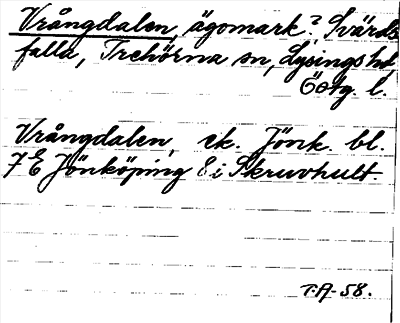 Vrångdalen, ägomark? Svärds
falla, Trehörna sn, Lysings hd,
Östg. l.
Vrångdalen, ek. Jönk. bl.
7 E Jönköping 8 i Skruvhult.
T.A-58.